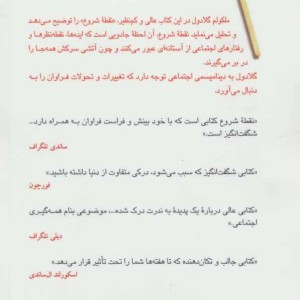 ملکولم گلادول در این کتاب عالی و کم‌نظیر، «نقطهٔ شروع» را توضیح می‌دهد
و تحلیل می‌نماید. نقطهٔ شروع، آن لحظهٔ جادویی است که ایده‌ها، نقطه‌نظرها و
رفتارهای اجتماعی از آستانه‌ای عبور می‌کنند و چون آتشی سرکش همه‌جا را
در بر می‌گیرند.
گلادول به دینامیسمی اجتماعی توجه دارد که تغییرات و تحولات فراوان را به
دنبال می‌آورد.
«نقطهٔ شروع کتابی است که با خود بینش و فراست فراوان به همراه دارد...
شگفت‌انگیز است.»
ساندی تلگراف
«کتابی شگفت‌انگیز که سبب می‌شود، درکی متفاوت از دنیا داشته باشید.»
فورچون
«کتابی عالی دربارهٔ یک پدیدهٔ به ندرت درک شده...، موضوعی بنام همه‌گیری
اجتماعی.»
دیلی تلگراف
«کتابی جالب و تکان‌دهنده که تا هفته‌ها شما را تحت تأثیر قرار می‌دهد.»
اسکاتلند آن‌ساندی